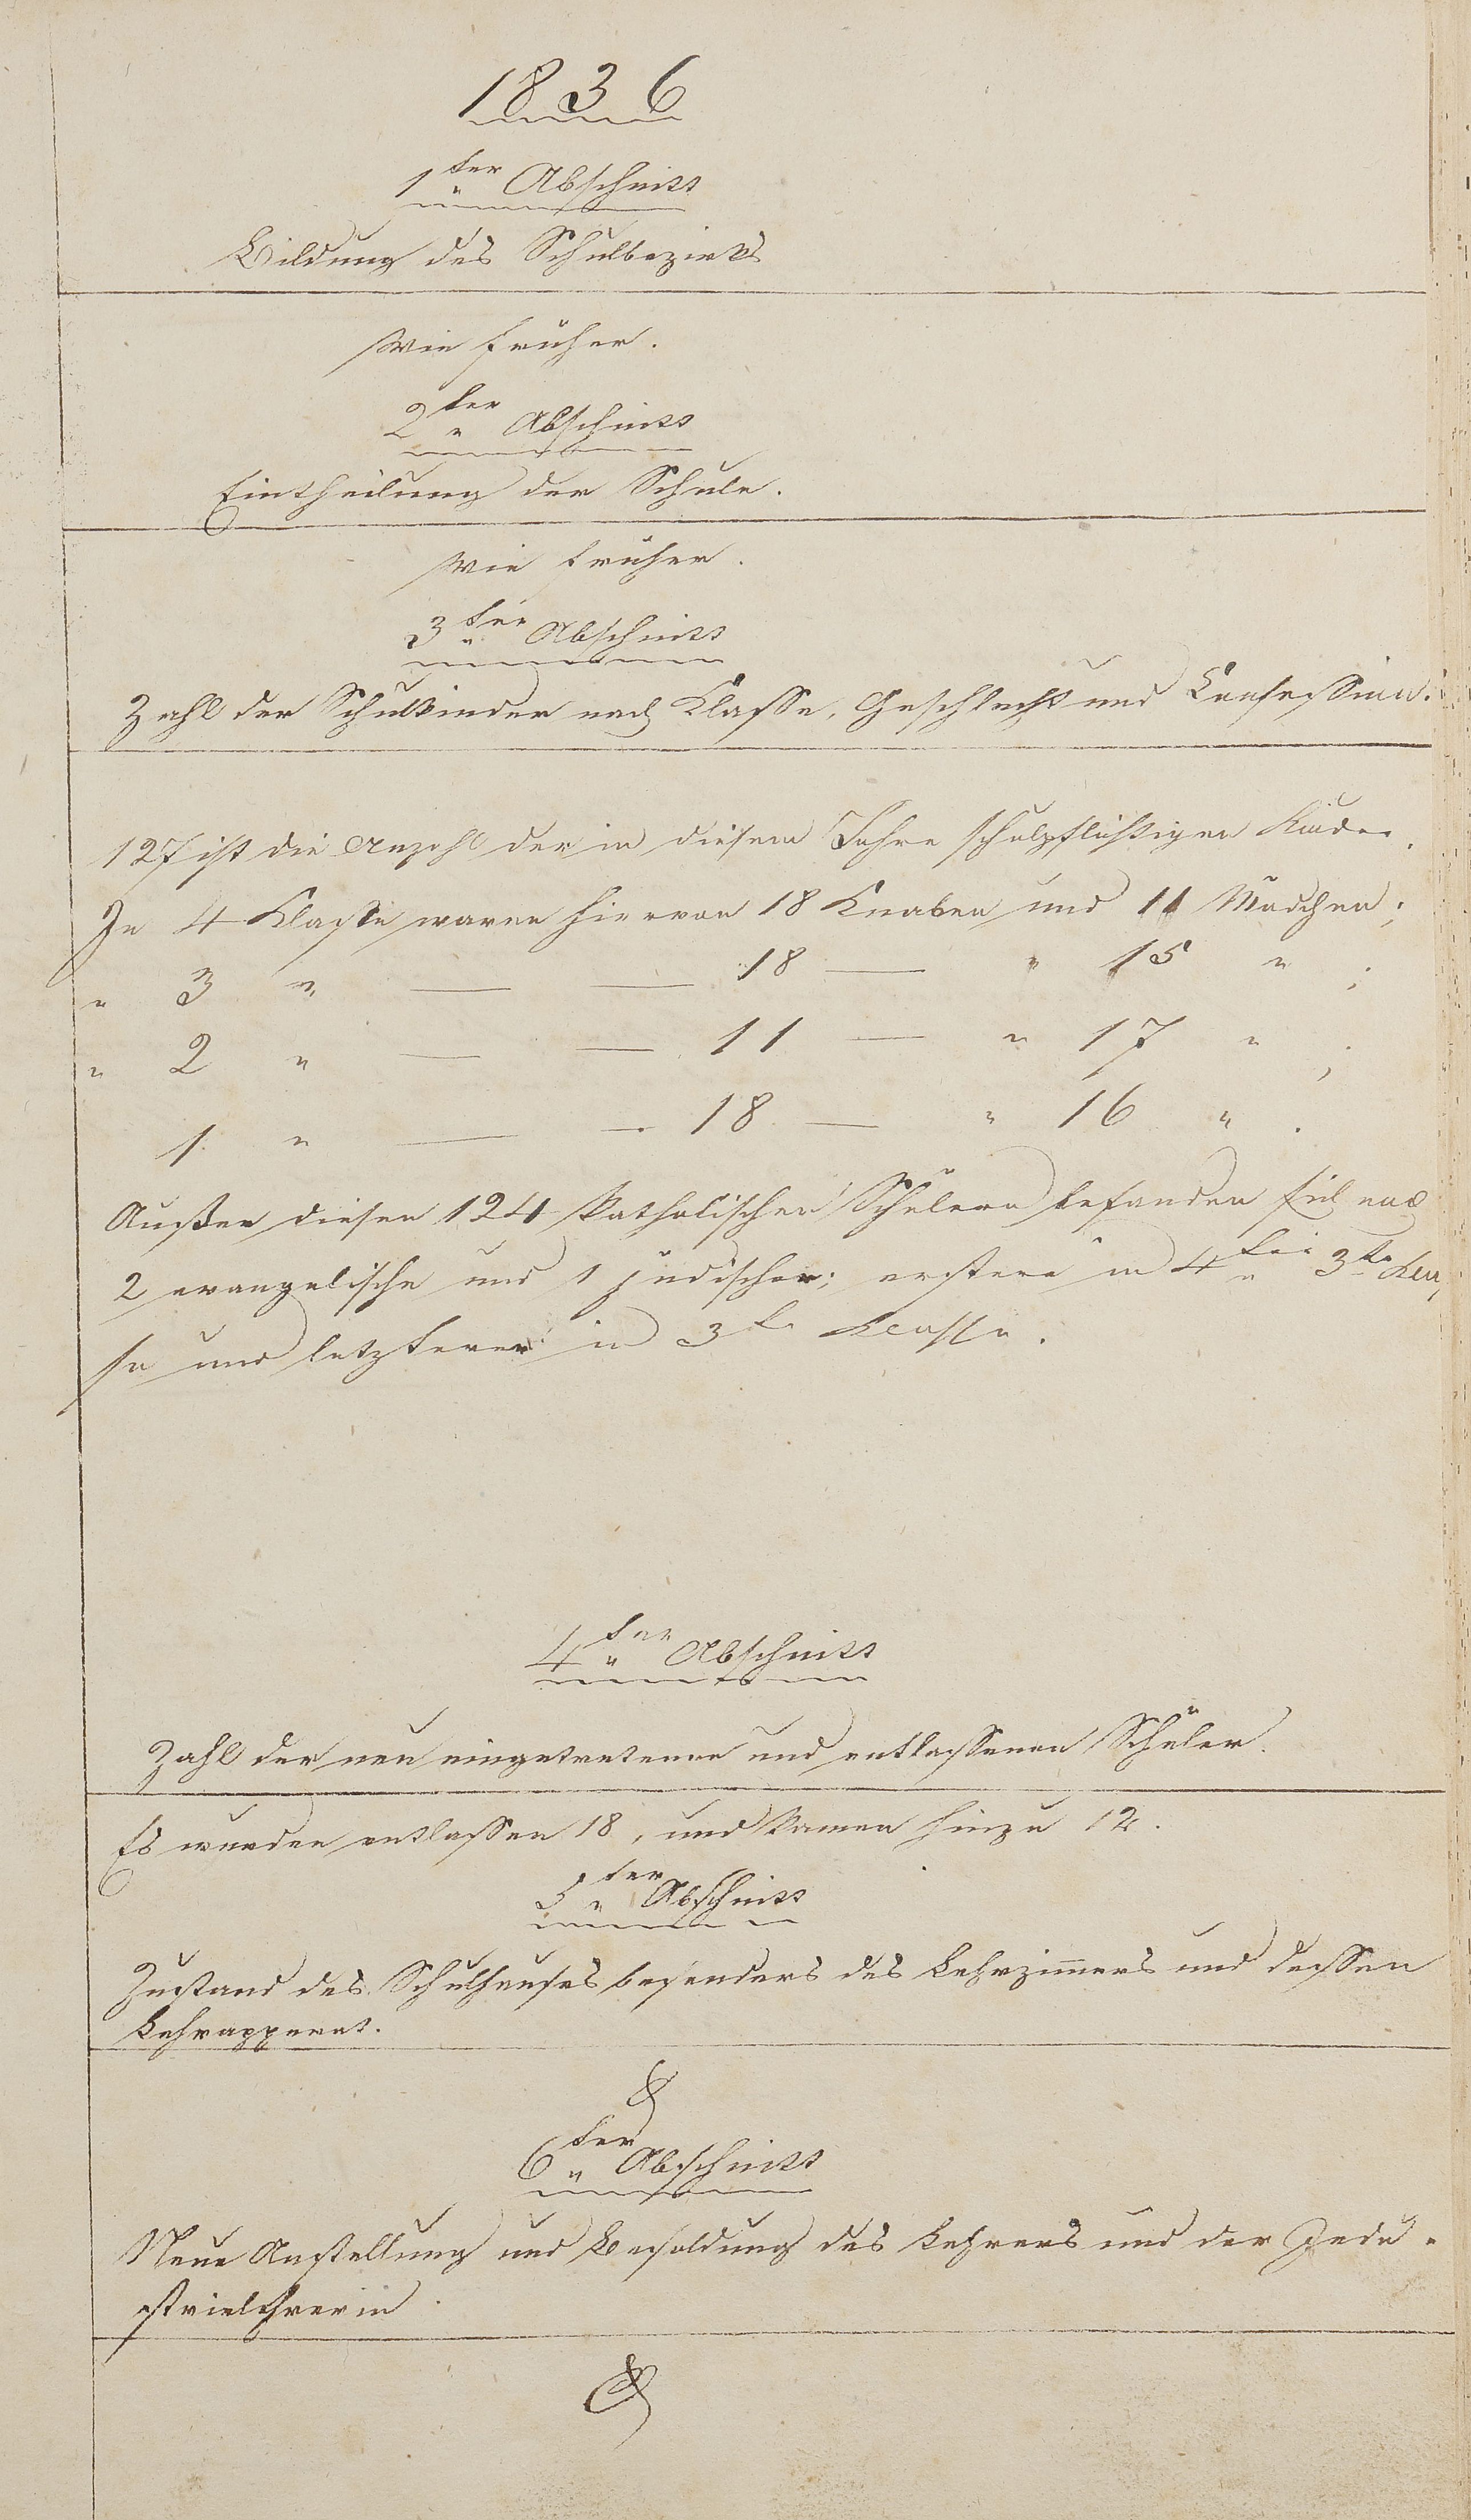 1836
1 ter Abschnitt
Bildung des Schulbezirks
Wie früher.
2 ter „ Abschnitt
Eintheilung der Schule.
Wie früher.
3 ter „ Abschnitt
Zahl der Schulkinder nach Klasse, Geschlecht und Confession.
127 ist die Anzahl der in diesem Jahre schulpflichtigen Kinder.
In 4 Klasse waren hiervon 18 Knaben und 11 Mädchen;
„ 3 „ — — 18 — „ 15 „ ;
„ 2 „ — — 11 — „ 17 „ ;
1 „ — — 18 — „ 16 „ .
Außer diesen 124 katholischen Schülern befanden sich noch
2 evangelische und 1 jüdischer; erstere in 4 „ 3te Klas,
se und letzterer in 3te Klasse.
4 ter „ Abschnitt
Zahl der neu eingetretenen und entlassenen Schüler.
Es wurden entlassen 18, und kamen hinzu 12.
5 ter „ Abschnitt
Zustand des Schulhauses besonders des Lehrzimmers und dessen
Lehrapparat.
6 ter „ Abschnitt
Neue Anstellung und Besoldung des Lehrers und der Indu-
strielehrerin.